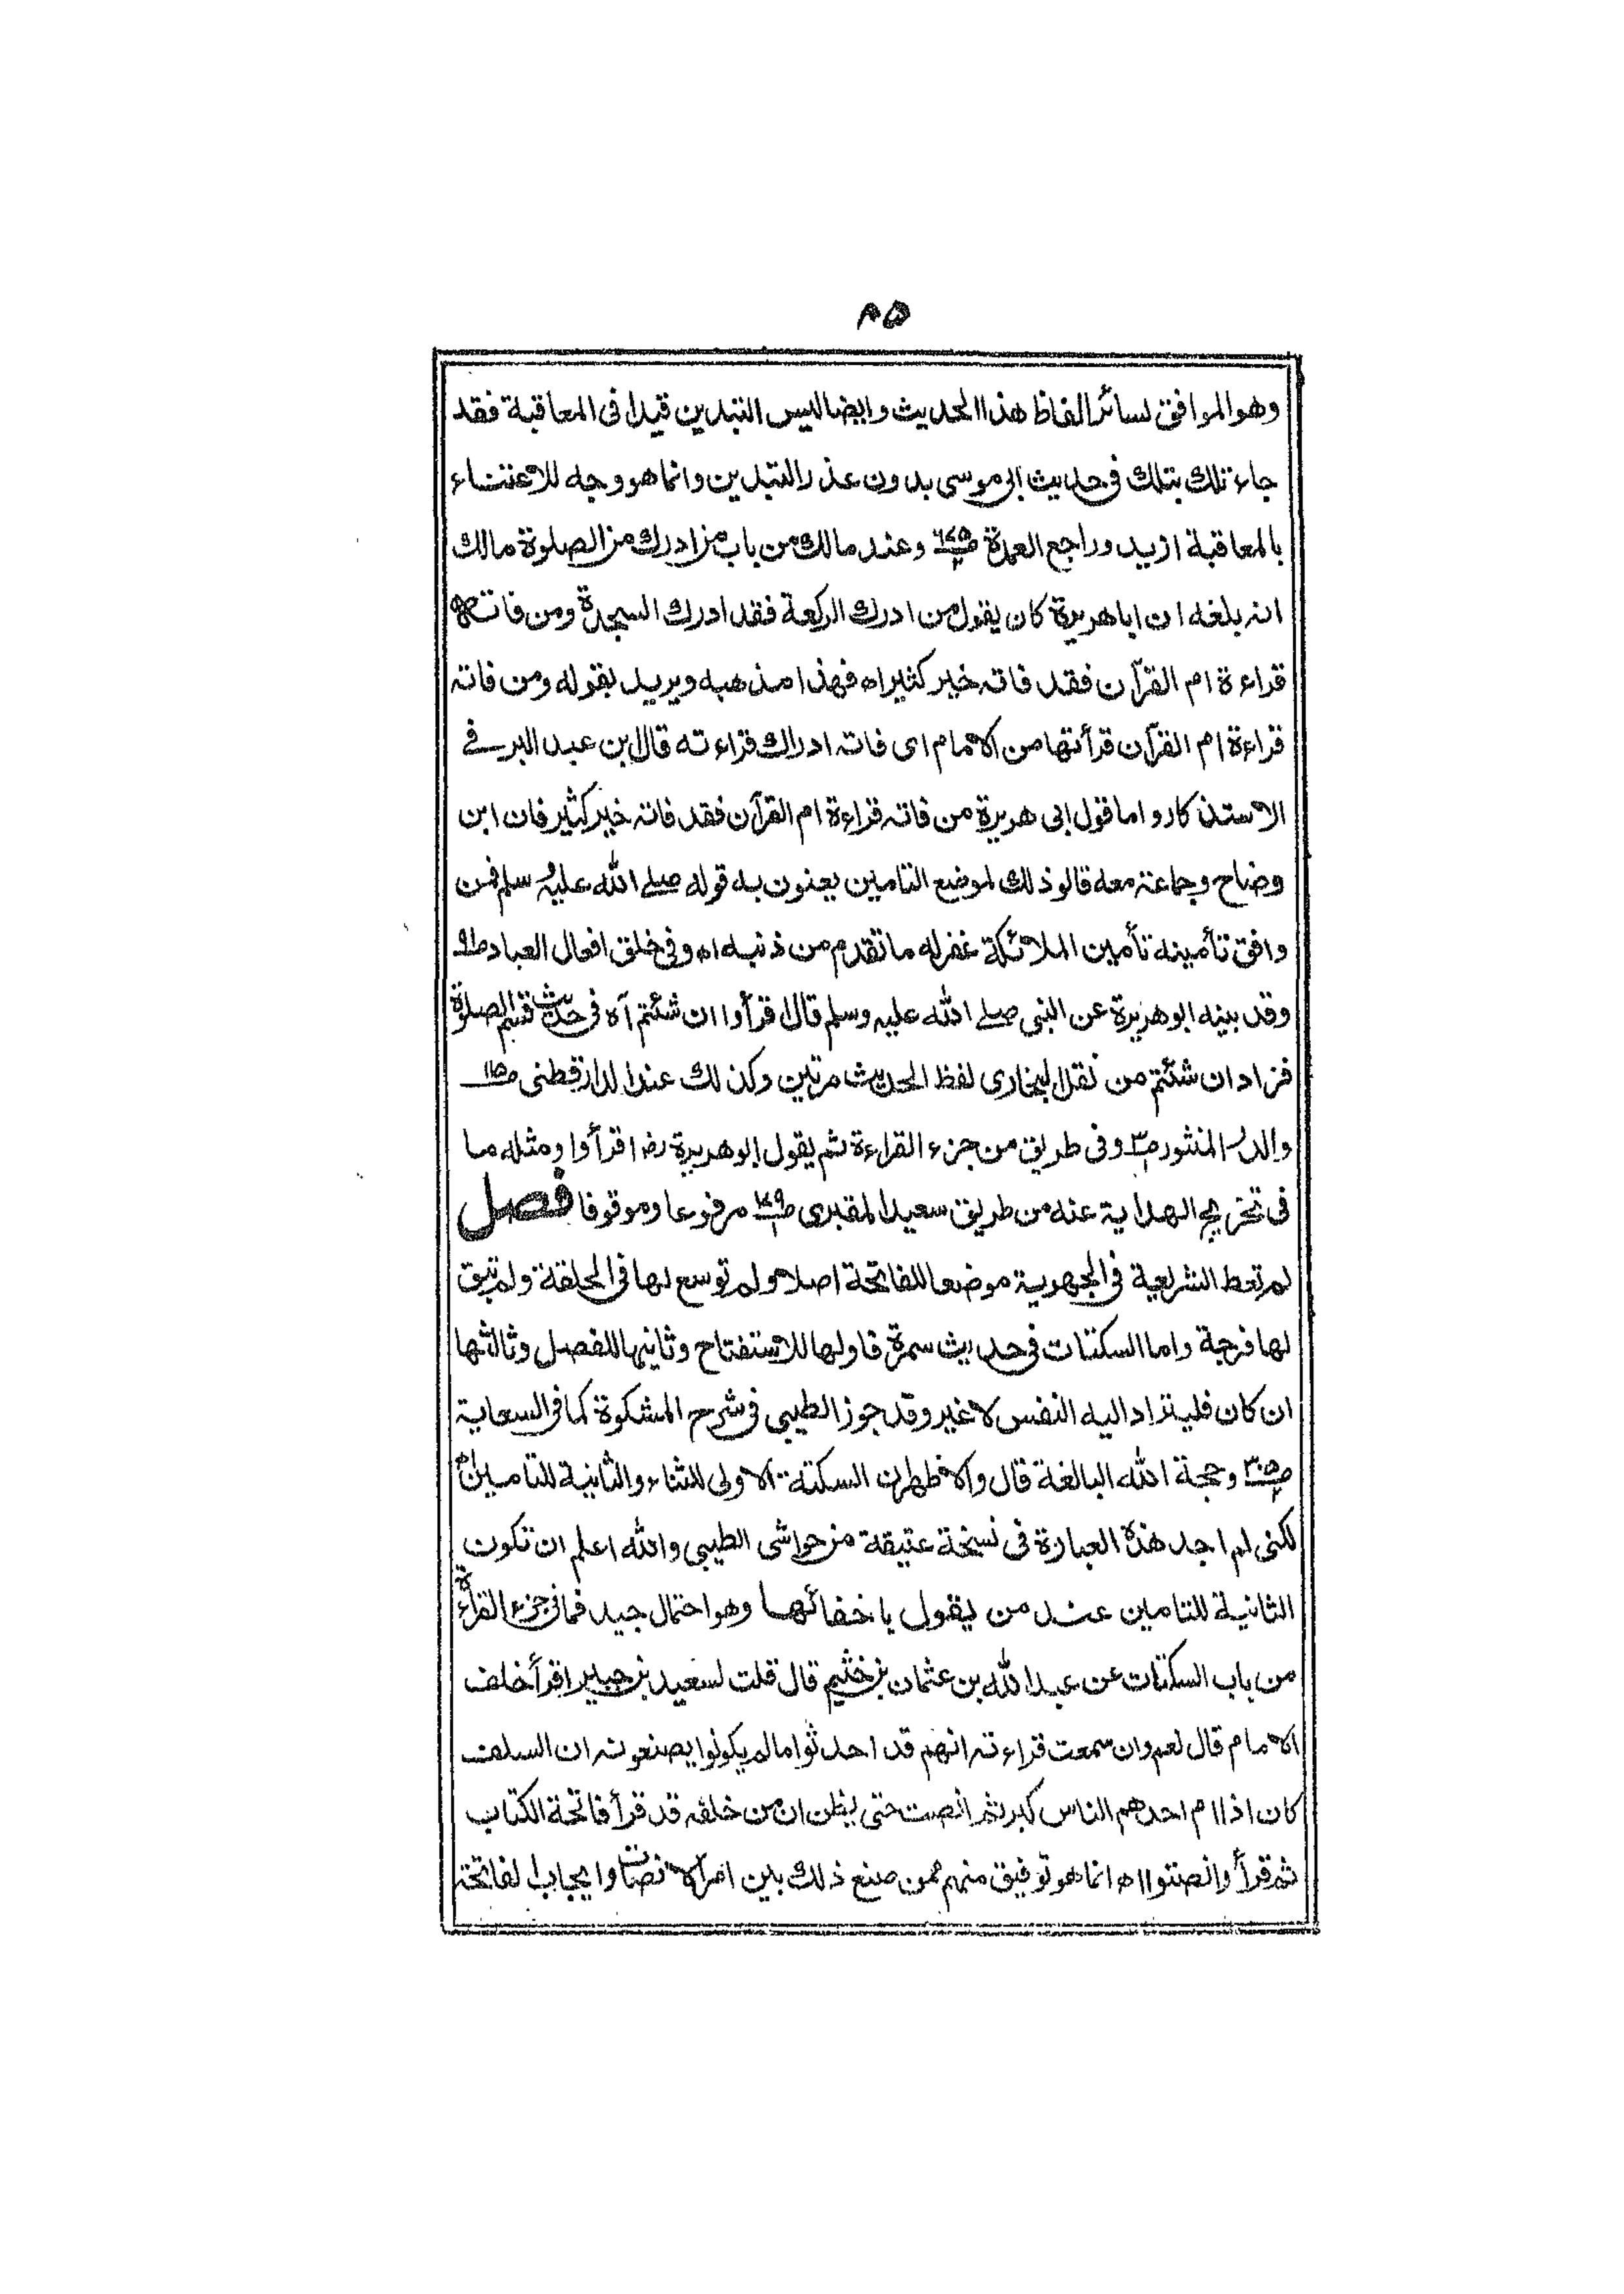 ٨٥
وهو الموافق لسائر الفاظ هذا الحديث وايضا ليس التبدين قيدا فى المعاقبة فقد
جاء تلك بتلك فى حديث ابى موسى بدون عذر التبدين وانما هو وجه للاعتناء
بالمعاقبة ازيد وراجع العمدة وعند مالك من باب من ادرك من الصلوة مالك
انه بلغه ان ابا هريرة كان يقول من ادرك الركعة فقد ادرك السجدة ومن فاته
قراءة ام القرآن فقد فاته خير كثير اه فهذا مذهبه ويريد بقوله ومن فاته
قراءة ام القرآن قرأتها من الامام اى فاته ادراك قراءته قال ابن عبد البر فے
الاستذكار واما قول ابى هريرة من فاته قراءة ام القرآن فقد فاته خير كثير فان ابن
وضاح وجماعة معه قالو ذلك لموضع التامين يعنون به قوله صلے الله عليه وسلم فمن
وافق تأمينه تأمين الملائكة غفر له ما تقدم من ذنبه اه وفى خلق افعال العباد
وقد بينه ابو هريرة عن النبى صلے الله عليه وسلم قال اقرأوا ان شئتم آه فى حديث قسم الصلوة
فزاد ان شئتم من نقل البخارى لفظ الحديث مرتين وكذلك عند الدارقطنى
والدر المنثور وفى طريق من جزء القراءة ثم يقول ابو هريرة رض اقرأوا ومثله ما
فى تخريج الهداية عنه من طريق سعيد المقبرى مرفوعا وموقوفا فصل
لم تعط الشريعة فى الجهرية موضعا للفاتحة اصلا ولم توسع لها فى الحلقة ولم تبق
لها فرجة واما السكتات فى حديث سمرة فاولها للاستفتاح وثانيها للفصل وثالثها
ان كان فليتراد اليه النفس لا غير وقد جوز الطيبى فى شرح المشكوة كما فى السعاية
وحجة الله البالغة قال والاظهر ان السكتة الاولى للثناء والثانية للتامين اه
لكنى لم اجد هذه العبارة فى نسخة عتيقة من حواشى الطيبى والله اعلم ان تكون
الثانية للتامين عند من يقول باخفائها وهو احتمال جيد فما فى جزء القراءة
من باب السكتات عن عبد الله بن عثمان بن خثيم قال قلت لسعيد بن جبير اقرأ خلف
الامام قال نعم وان سمعت قراءته انهم قد احدثوا ما لم يكونوا يصنعونه ان السلف
كان اذا ام احدهم الناس كبر ثم انصت حتى يظن ان من خلفه قد قرأ فاتحة الكتاب
ثم قرأ وانصتوا اه انما هو توفيق منهم ممن صنع ذلك بين امر الانصات وايجاب الفاتحة